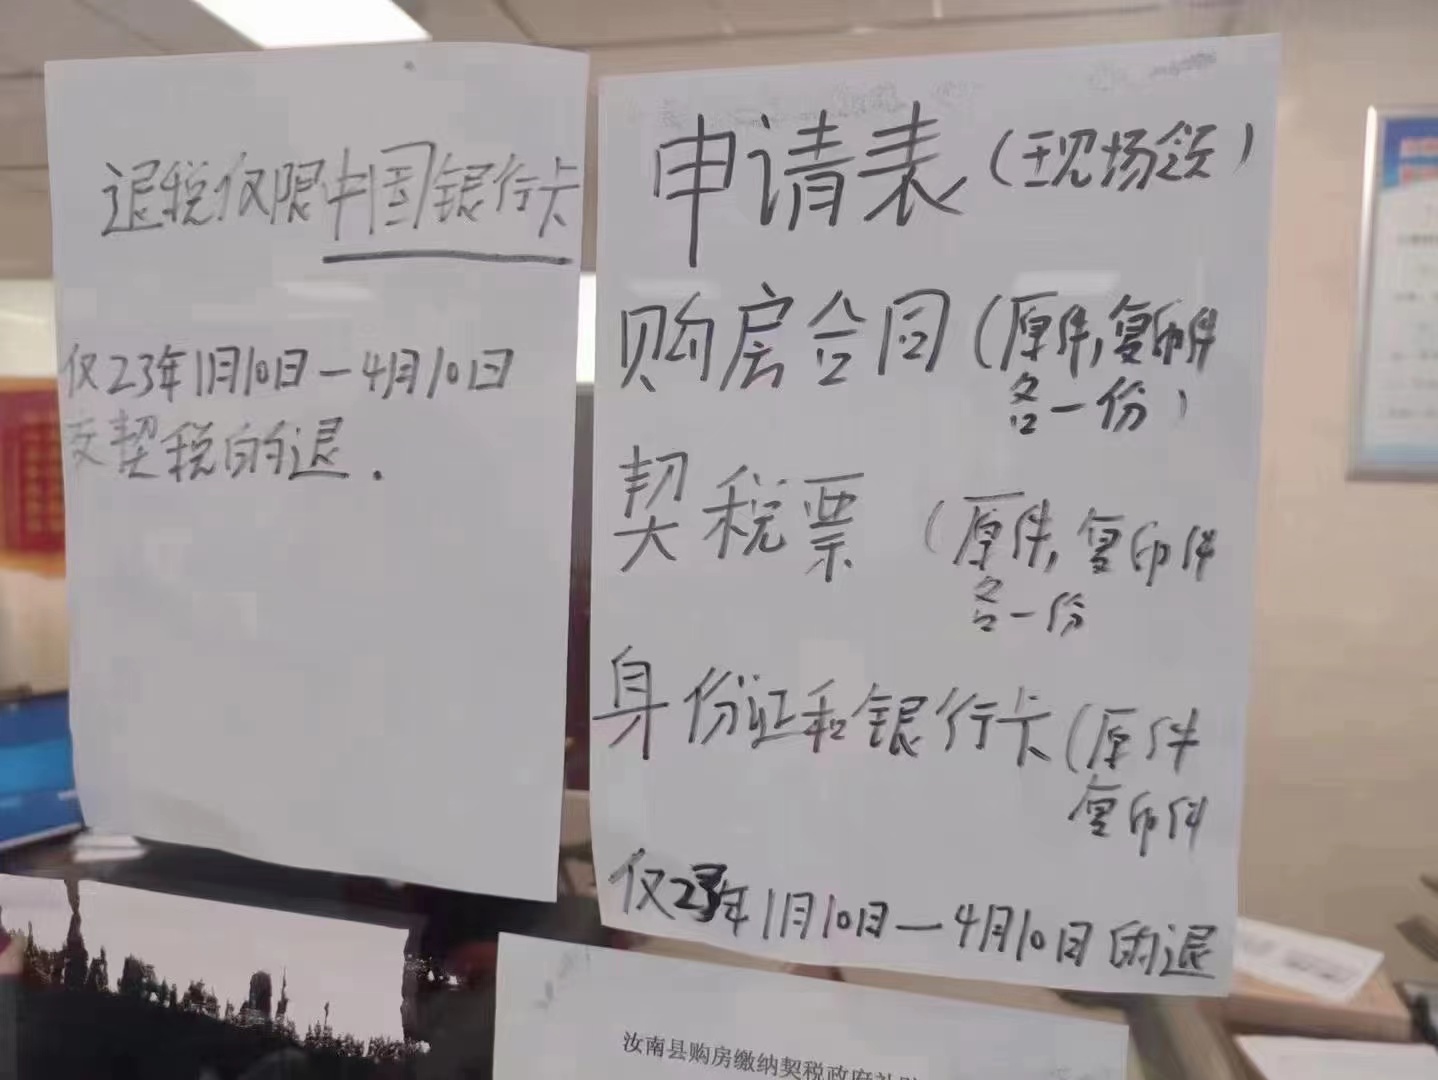 退税仅限中国银行卡
仅23年1月10日—4月10日
交契税的退.
申请表(现场领)
购房合同(原件,复印件
各一份)
契税票(原件,复印件
各一份
身份证和银行卡(原件
复印件
仅23年1月10日—4月10日的退
汝南县购房缴纳契税政府补贴